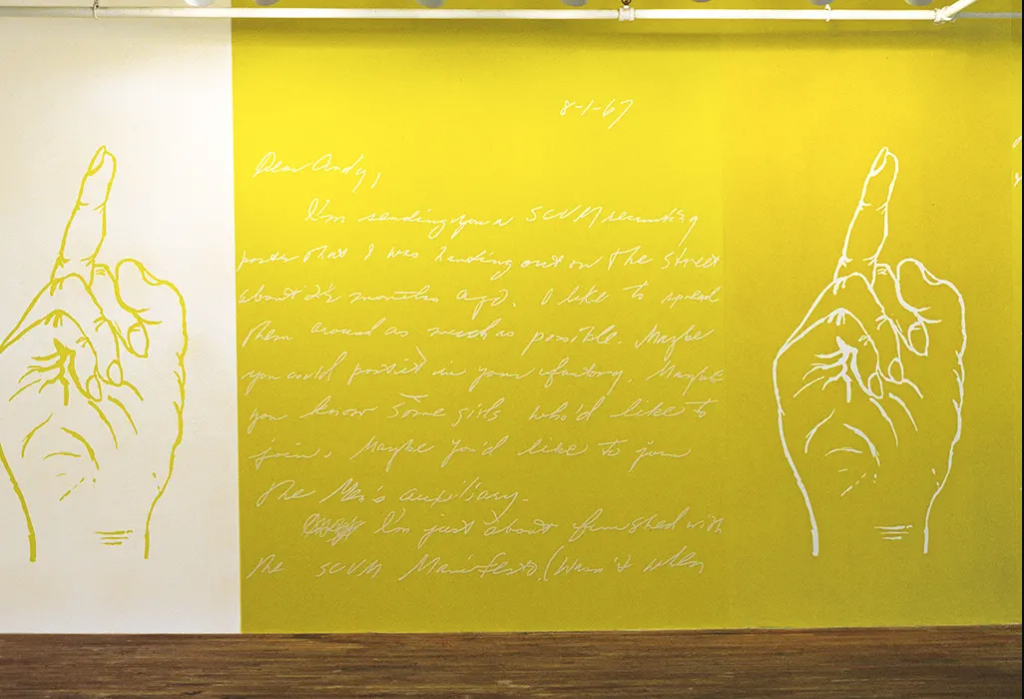 8-1-67
Dear Andy,
I'm sending you a SCUM recruiting
poster that I was handing out on the street
about 2½ months ago. I like to spread
them around as much as possible. Maybe
you could post it in your factory. Maybe
you know some girls who'd like to
join. Maybe you'd like to join
the Men's auxiliary.
I'm just about finished with
the SCUM Manifesto. (Wasn't when